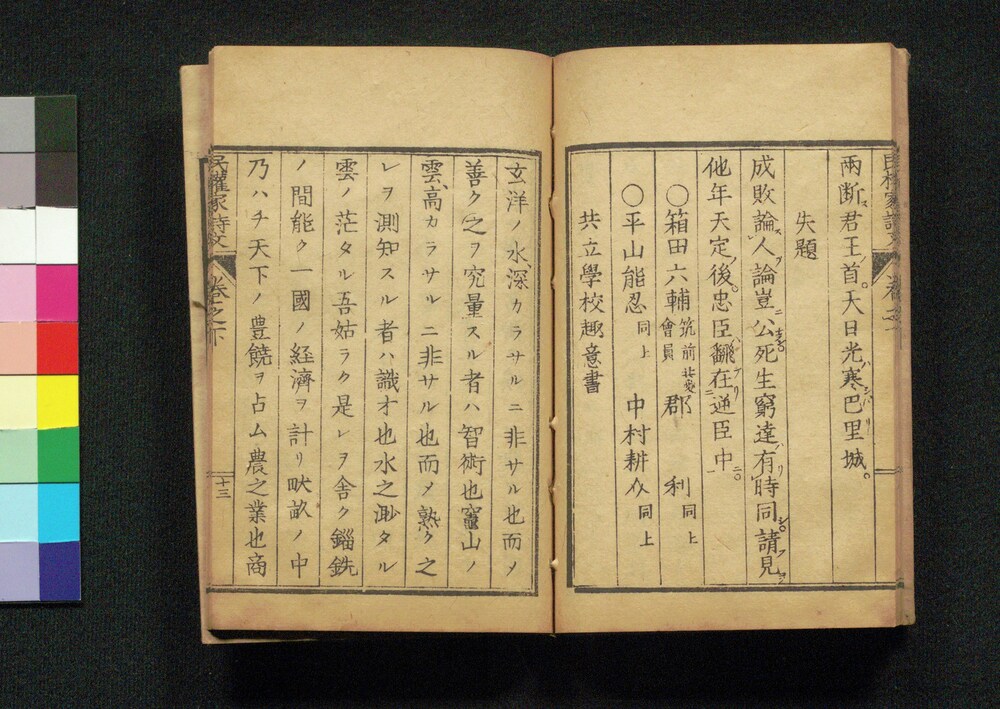 兩断君王首。天日光寒巴里城。
失題
成敗論人論豈公死生窮達有時同請見
他年天定後。忠臣翻在逆臣中
〇箱田六輔 筑前 會員 郡 利 同上
〇平山能忍 同上 中村耕介 同上
共立學校趣意書
玄洋ノ水、深カラサルニ非サル也而メ
善ク之ヲ究量スル者ハ智術也竈山ノ
雲、高カラサルニ非サル也而メ熟ク之
レヲ測知スル者ハ識才也水之渺タル
雲ノ茫タル吾姑ラク是レヲ舎ク錙銖
ノ間能ク一國ノ経濟ヲ計リ畎畝ノ中
乃ハチ天下ノ豊饒ヲ占ム農之業也商
民權家詩文 卷之下 十三